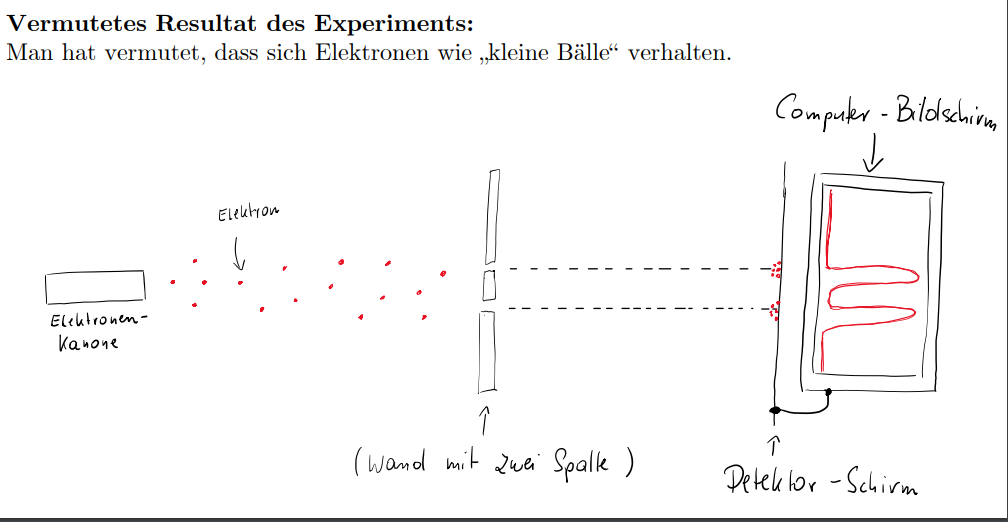 Vermutetes Resultat des Experiments:
Man hat vermutet, dass sich Elektronen wie „kleine Bälle“ verhalten.
Computer - Bildschirm
Elektron
Elektronen-
Kanone
(Wand mit zwei Spalte)
Detektor - Schirm